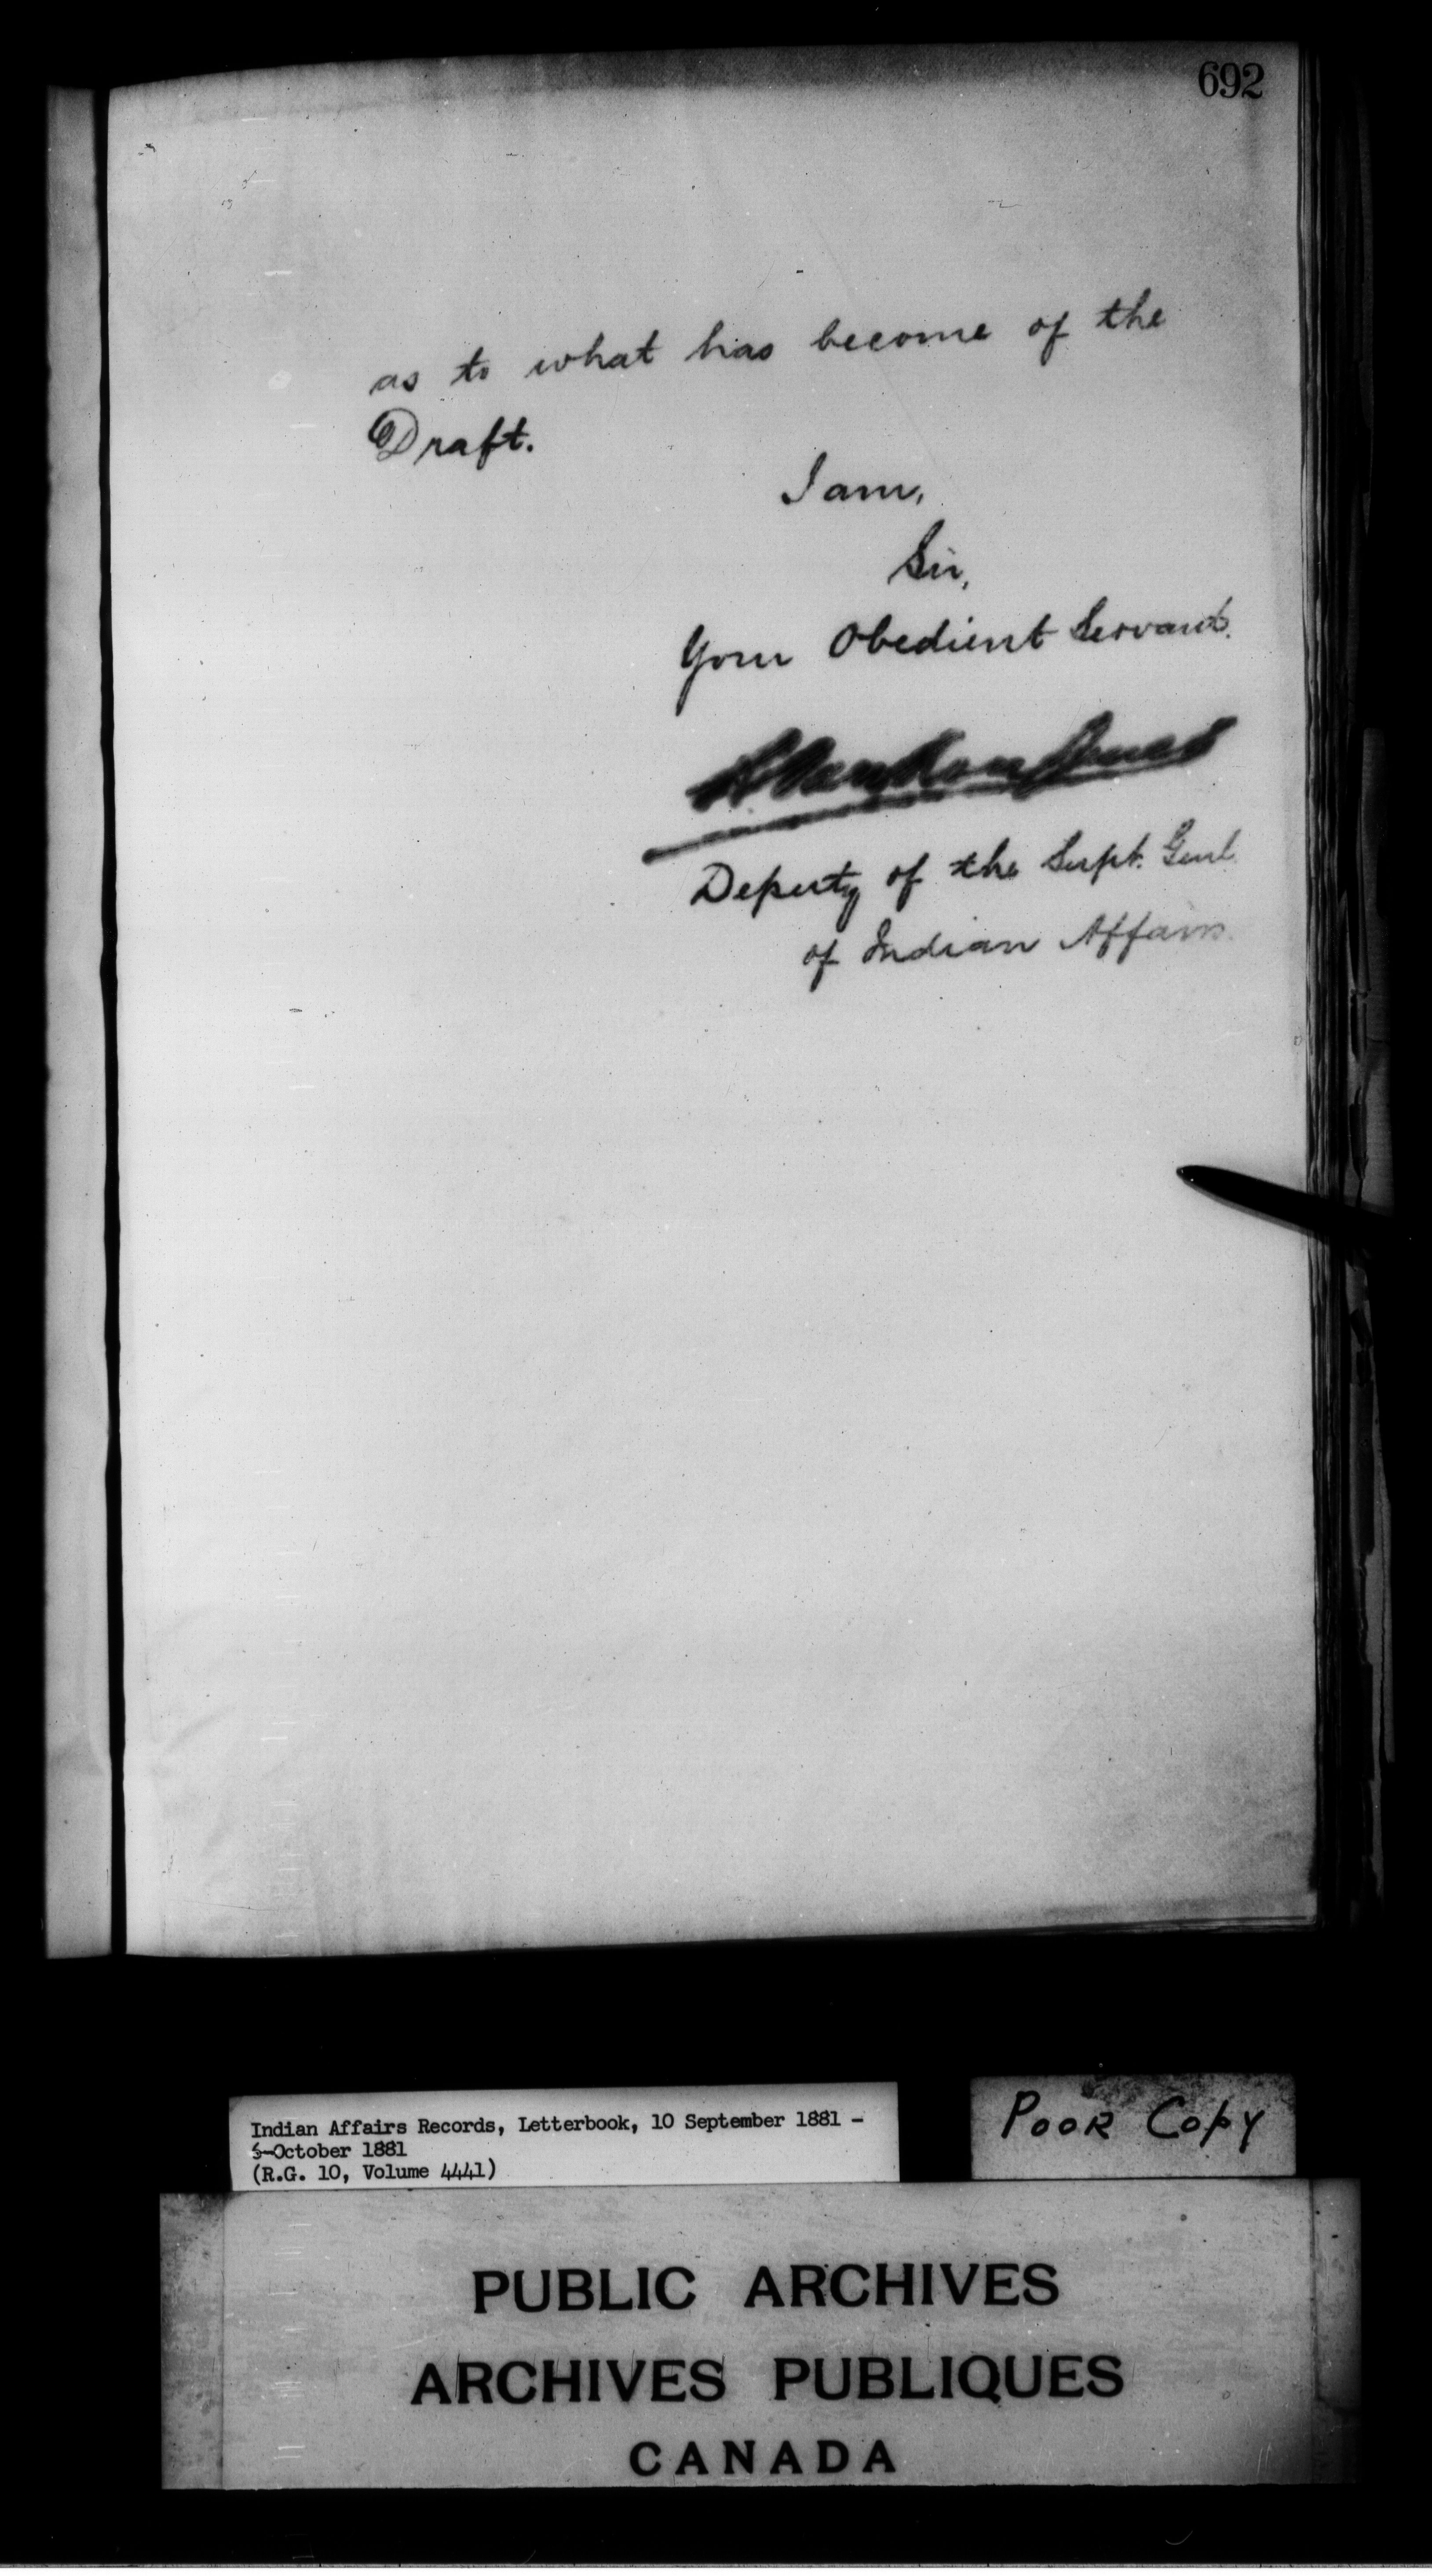 692
as to what has become of the
Draft.
I am,
Sir,
Your Obedient Servant.
Deputy of the Supt. Genl.
of Indian Affairs.
Indian Affairs Records, Letterbook, 10 September 1881 -
October 1881
(R.G. 10, Volume 4441)
POOR COPY
PUBLIC ARCHIVES
ARCHIVES PUBLIQUES
CANADA